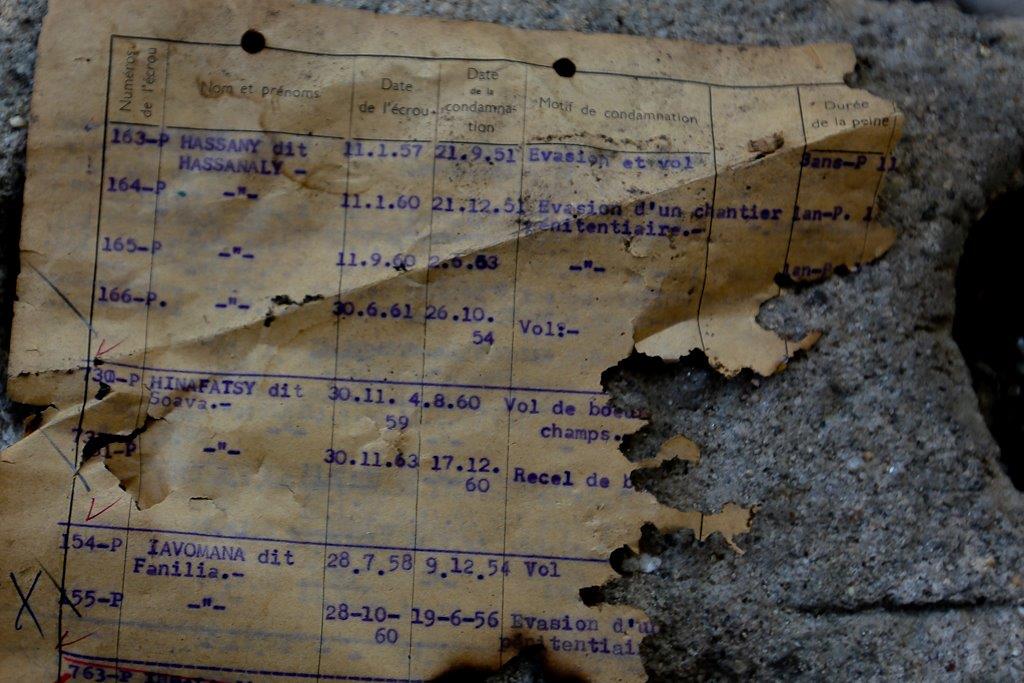 Numéros de l'écrou Nom et prénoms Date de l'écrou. Date de la condamnation Motif de condamnation Durée de la peine
163-P HASSANY dit 11.1.57 21.9.51 Evasion et vol 3ans-P 11
HASSANALY -
164-P -"- 11.1.60 21.12.51 Evasion d'un chantier 1an-P. 1
pénitentiaire.-
165-P -"- 11.9.60 2.6.53 -"- 1an-P
166-P. -"- 30.6.61 26.10. Vol:-
54
730-P HINAFATSY dit 30.11. 4.8.60 Vol de boeu
Soava.- 59 champs.
731-P -"- 30.11.63 17.12. Recel de b
60
154-P IAVOMANA dit 28.7.58 9.12.54 Vol
Fanilia.-
155-P -"- 28-10- 19-6-56 Evasion d'un
60 pénitentiai
763-P